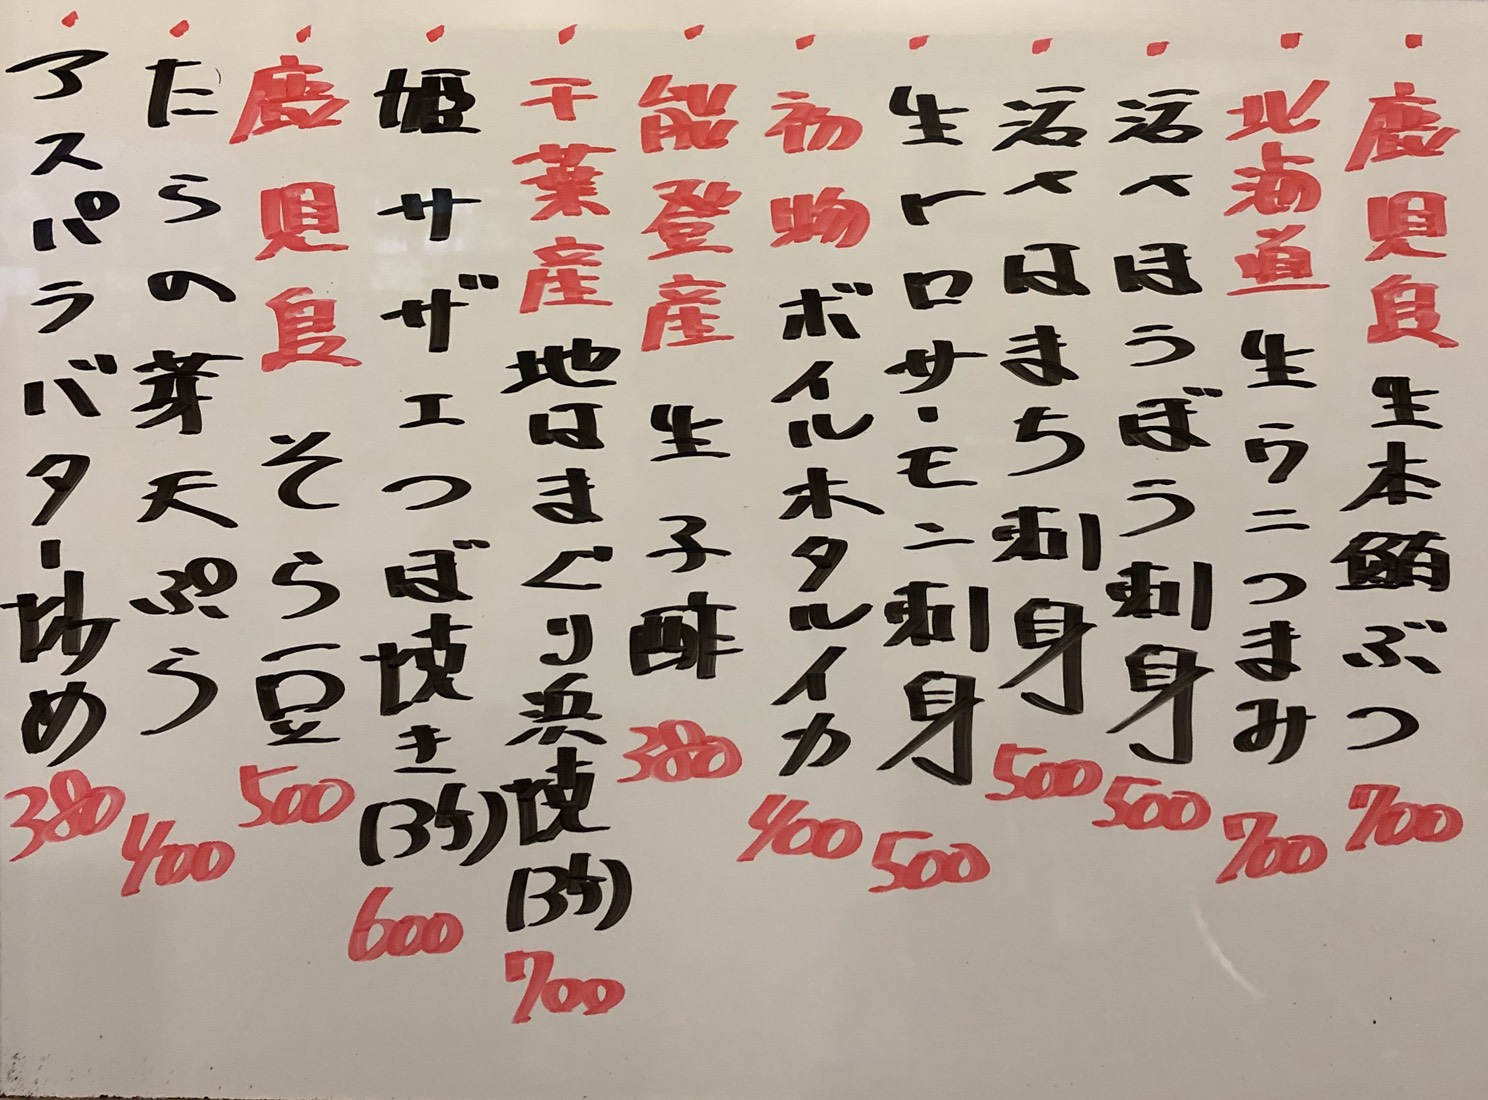 ・鹿児島 生本鮪ぶつ 700
・北海道 生ウニつまみ 700
・活〆ほうぼう刺身 500
・活〆はまち刺身 500
・生トロサーモン刺身 500
・初物 ボイルホタルイカ 400
・能登産 生子酢 380
・千葉産 地はまぐり浜焼(3ケ) 700
・姫サザエつぼ焼き(3ケ) 600
・鹿児島 そら豆 500
・たらの芽天ぷら 400
・アスパラバター炒め 380